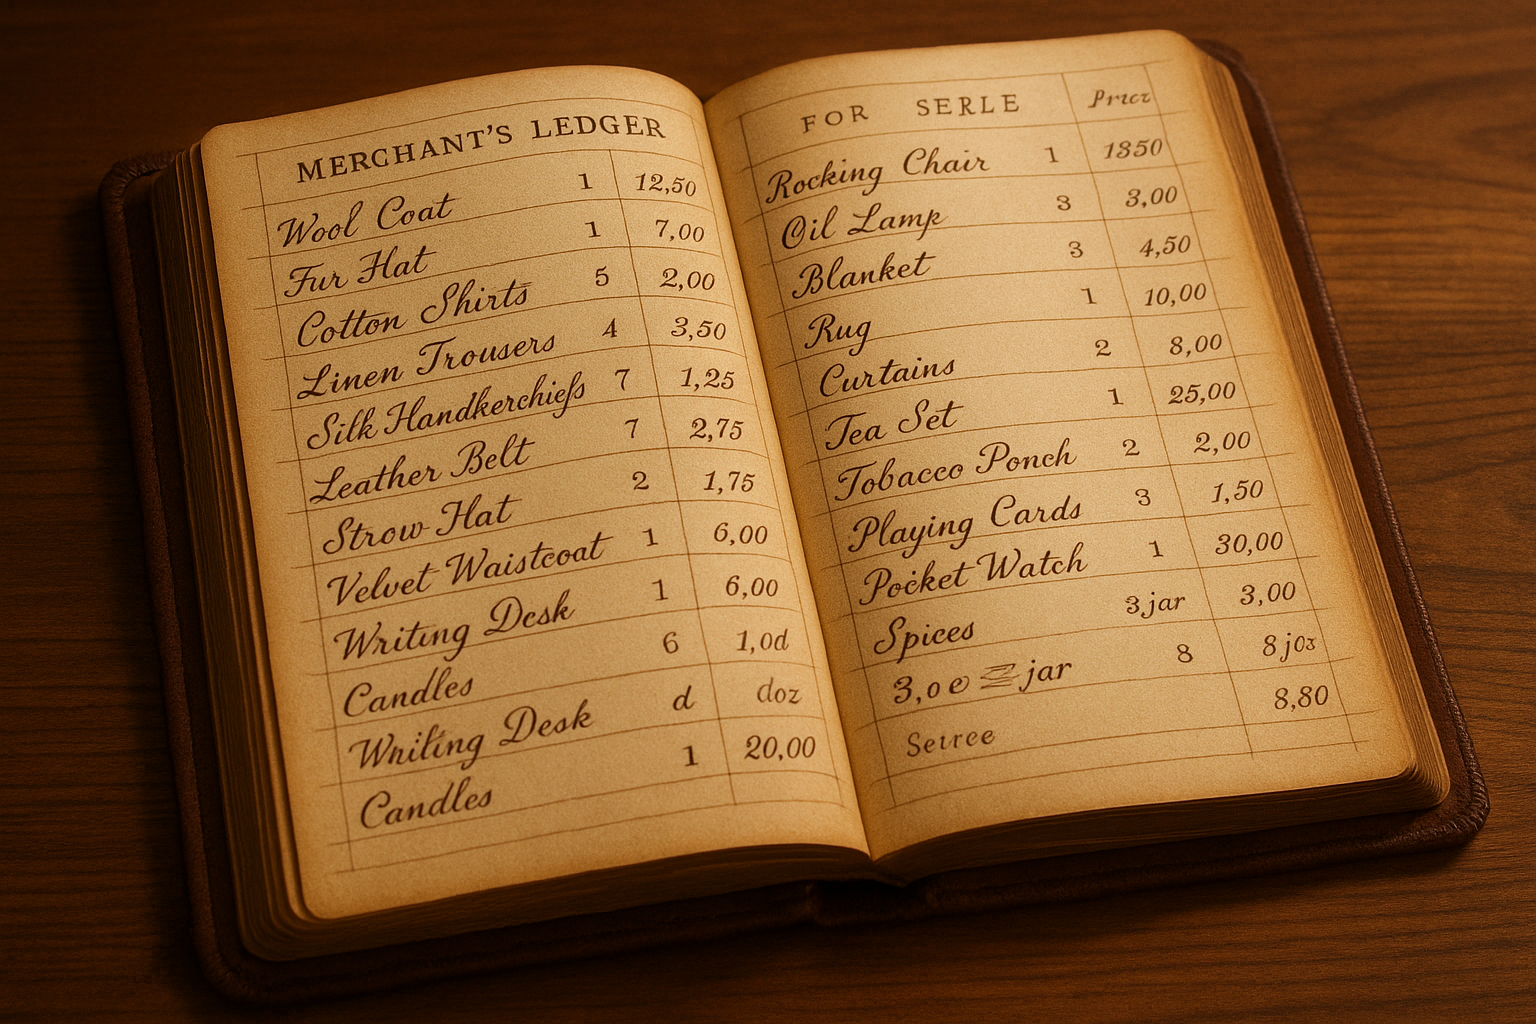 MERCHANT'S LEDGER
Wool Coat 1 12,50
Fur Hat 1 7,00
Cotton Shirts 5 2,00
Linen Trousers 4 3,50
Silk Handkerchiefs 7 1,25
Leather Belt 7 2,75
Strow Hat 2 1,75
Velvet Waistcoat 1 6,00
Writing Desk 1 6,00
Candles 6 1,0d
Writing Desk d doz
Candles 1 20,00
FOR SERLE Pricz
Rocking Chair 1 1350
Oil Lamp 3 3,00
Blanket 3 4,50
Rug 1 10,00
Curtains 2 8,00
Tea Set 1 25,00
Tobacco Ponch 2 2,00
Playing Cards 3 1,50
Pocket Watch 1 30,00
Spices 3 jar 3,00
3,0 e jar 8 8 joz
Setree 8,80